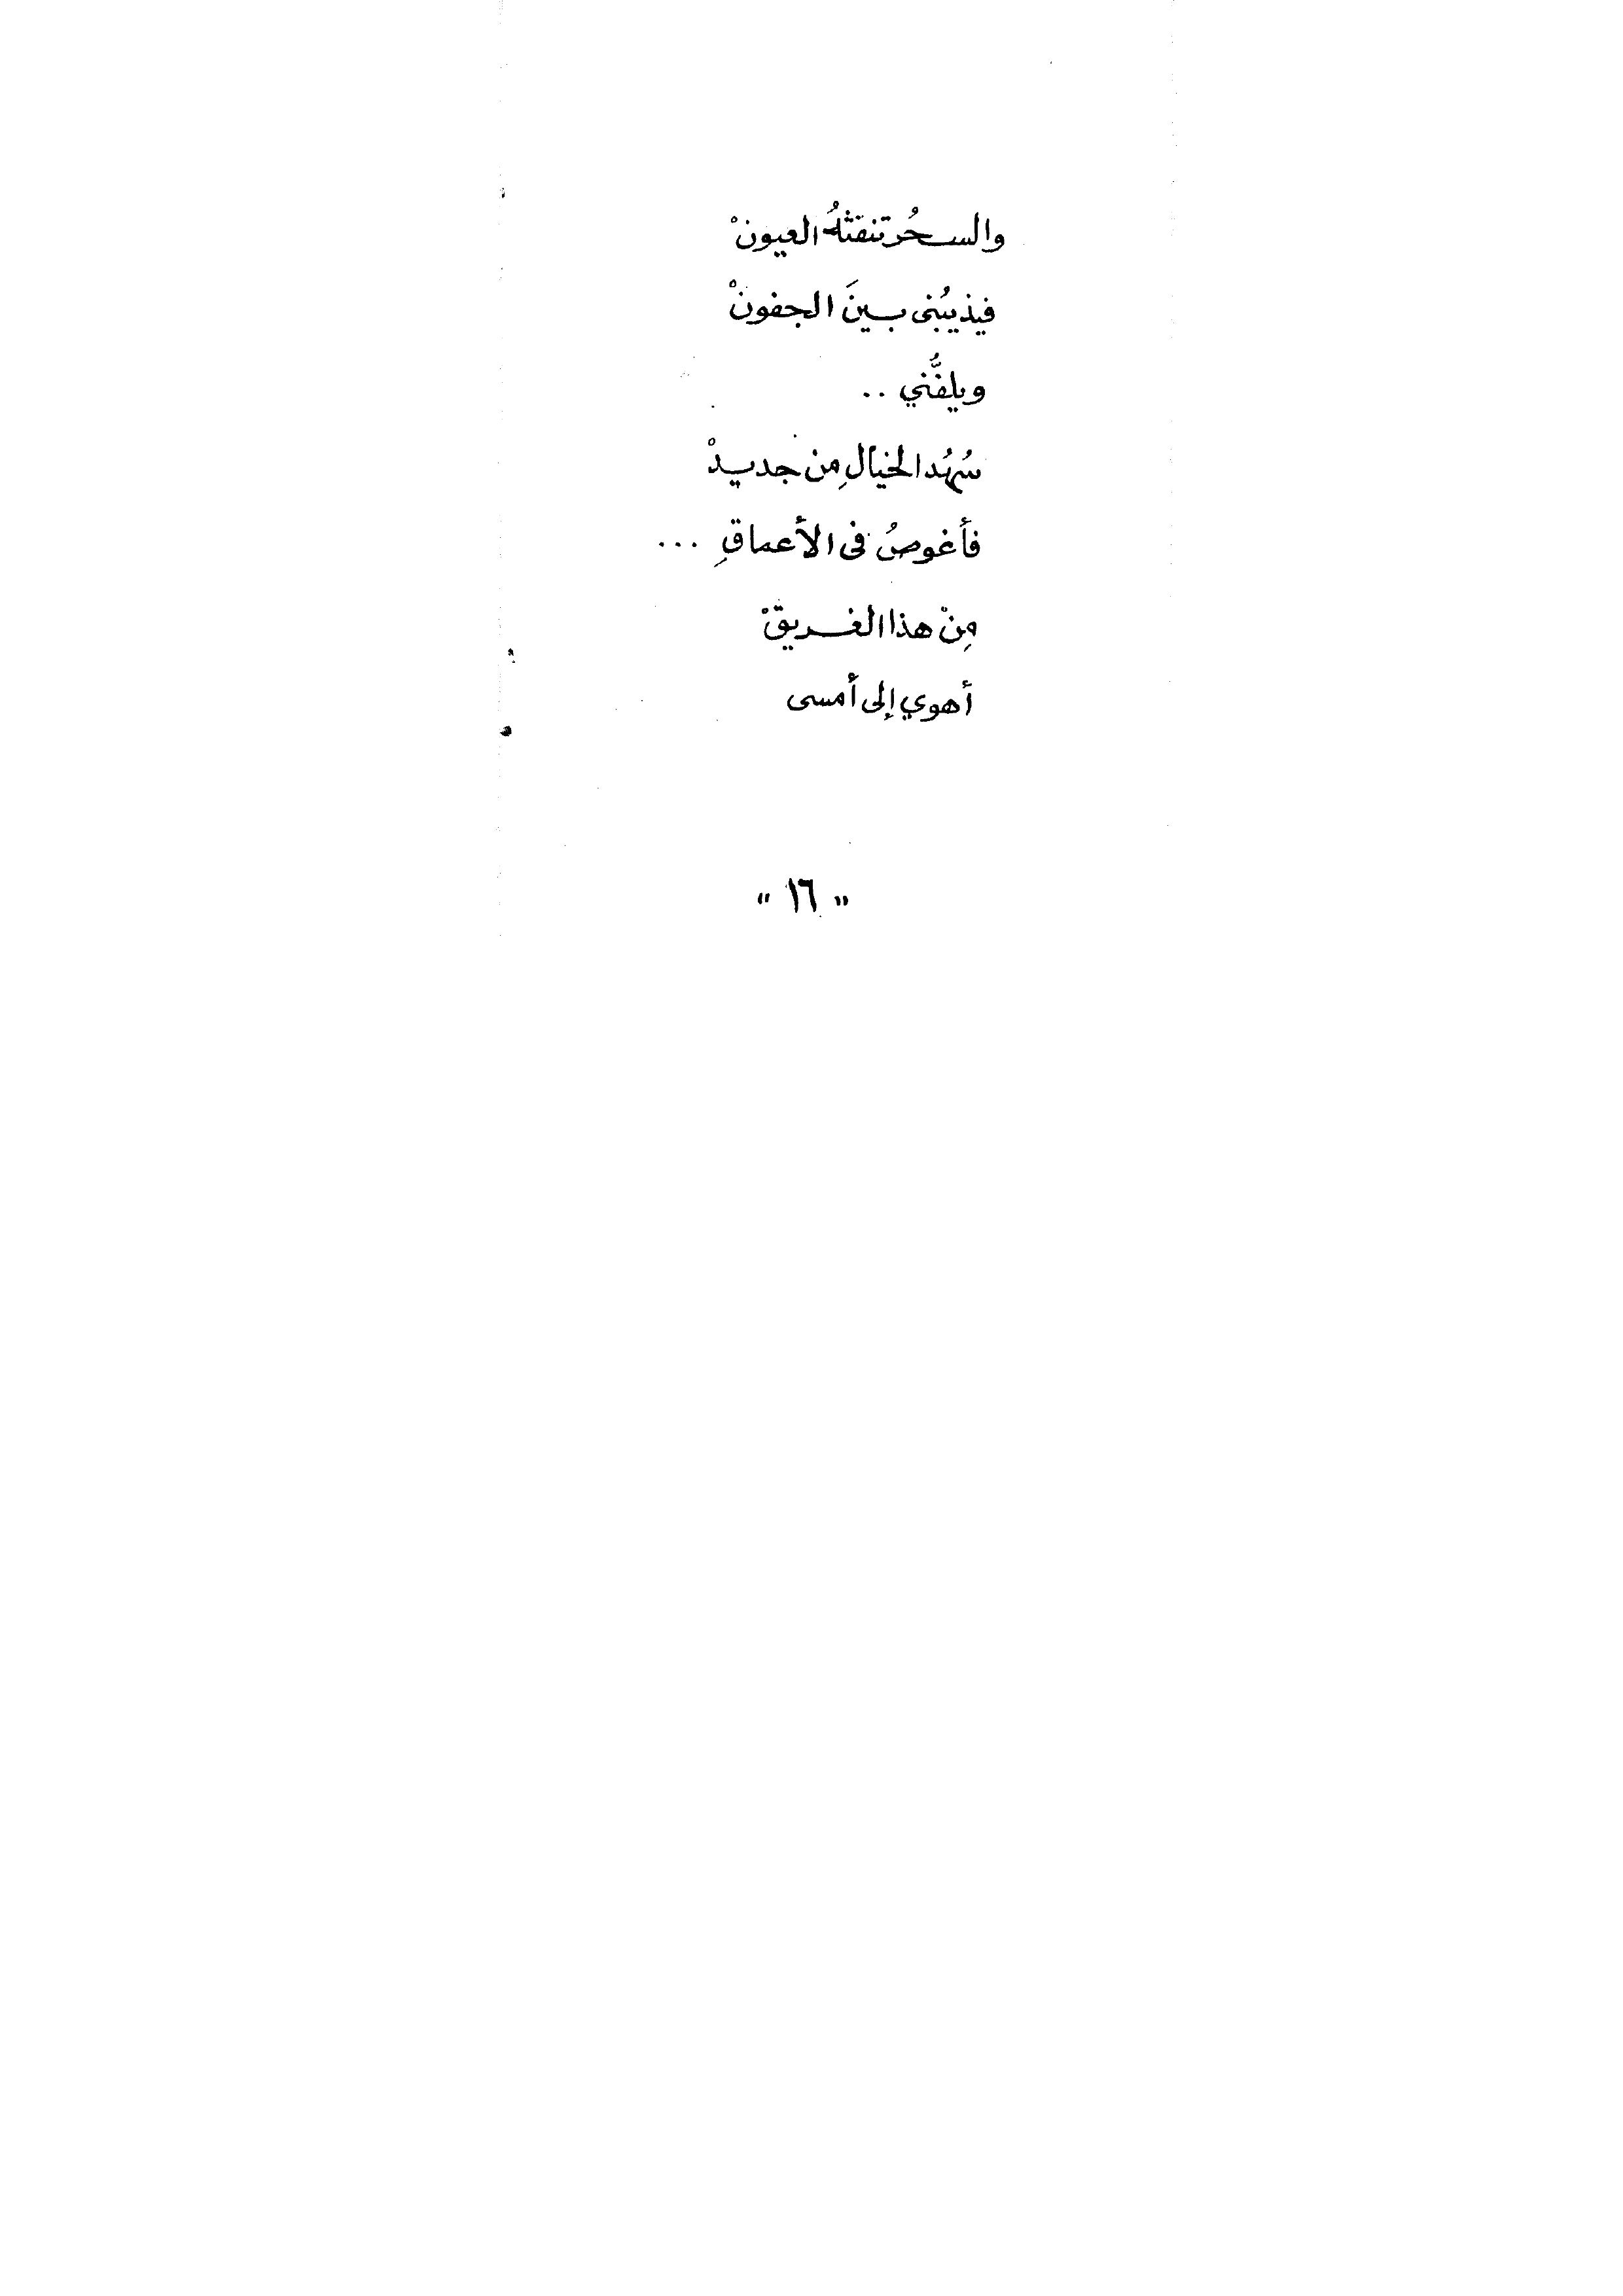 والسحُر تنفثهُ العيونْ
فيذيبُنى بينَ الجفونْ
ويلفُّني ..
سُهُد الخيالِ من جديدْ
فأغوصُ فى الأعماقِ ...
مِنْ هذا الغريقْ
أهوي إلى أمسى
" ١٦ "